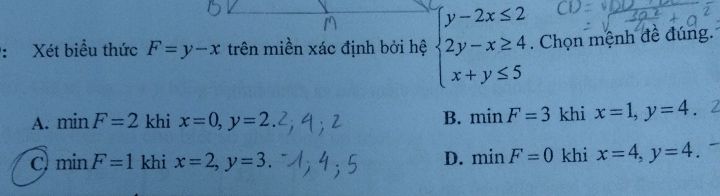 B
M
CD =
: Xét biểu thức F = y − x trên miền xác định bởi hệ { y − 2x ≤ 2
2y − x ≥ 4 . Chọn mệnh đề đúng.
x + y ≤ 5
A. min F = 2 khi x = 0, y = 2. 2, 4 ; 2
B. min F = 3 khi x = 1, y = 4 . 2
C. min F = 1 khi x = 2, y = 3. -1 ; 4 ; 5
D. min F = 0 khi x = 4, y = 4 . -